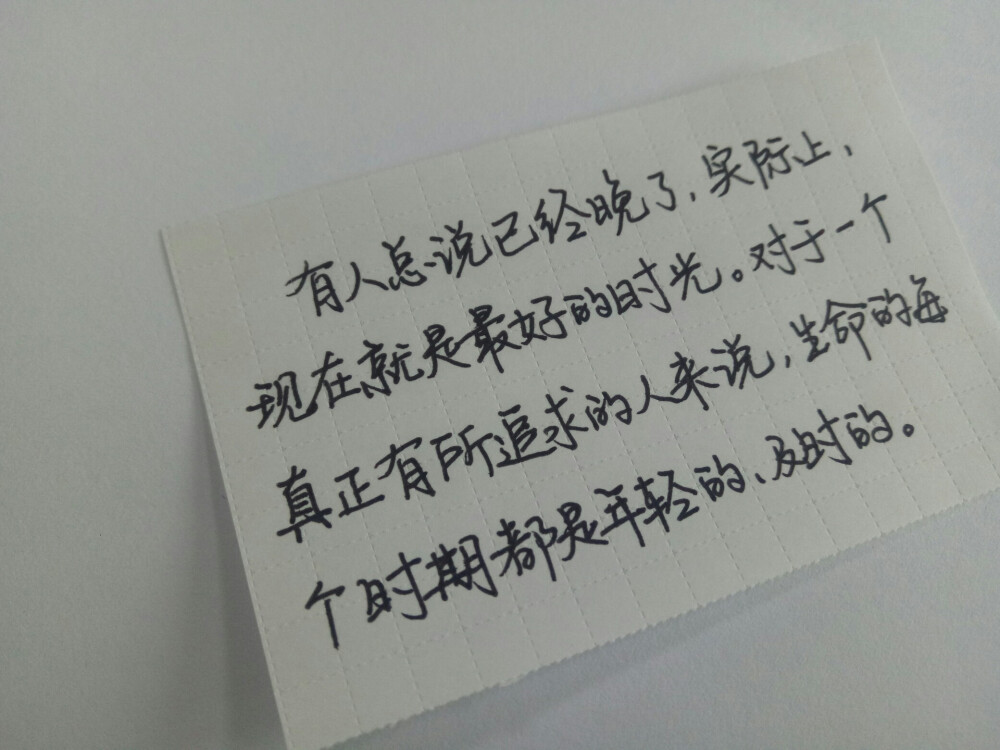 有人总说已经晚了，实际上，
现在就是最好的时光。对于一个
真正有所追求的人来说，生命的每
个时期都是年轻的、及时的。